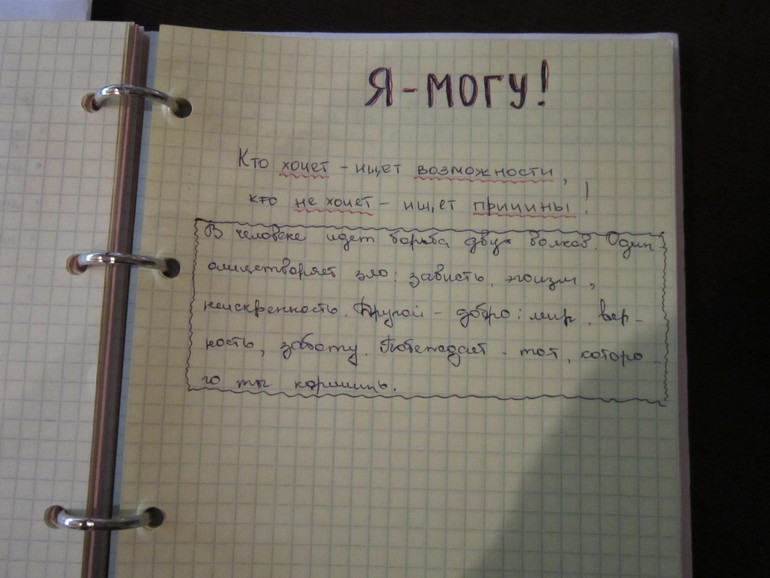 Я-МОГУ!
Кто хочет - ищет возможности,
кто не хочет - ищет причины!
В человеке идет борьба двух волков. Один
олицетворяет зло: зависть, эгоизм,
неискренность. Другой - добро: мир, вер-
ность, заботу. Побеждает - тот, которо-
го ты кормишь.